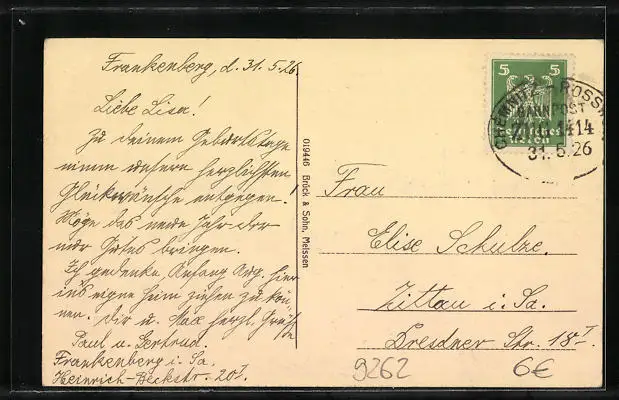 Frankenberg, d. 31.5.26
Liebe Lisa!
Zu deinem Geburtstage
nimm unsere herzlichsten
Glückwünsche entgegen.
Möge das neue Jahr dir
nur Gutes bringen.
Ich gedenke, Anfang Aug. hier
ins eigne Heim ziehen zu kön-
nen. Dir u. Max herzl. Grüße
Paul u. Gertrud.
Frankenberg i. Sa.
Heinrich-Beckstr. 20I.
019446 Brück & Sohn, Meissen
5 5
Deutsches
Reich
CHEMNITZ-ROSSW
BAHNPOST
ZUG 1414
31.5.26
Frau
Elise Schulze.
Zittau i. Sa.
Dresdner Str. 18I.
9262
6€